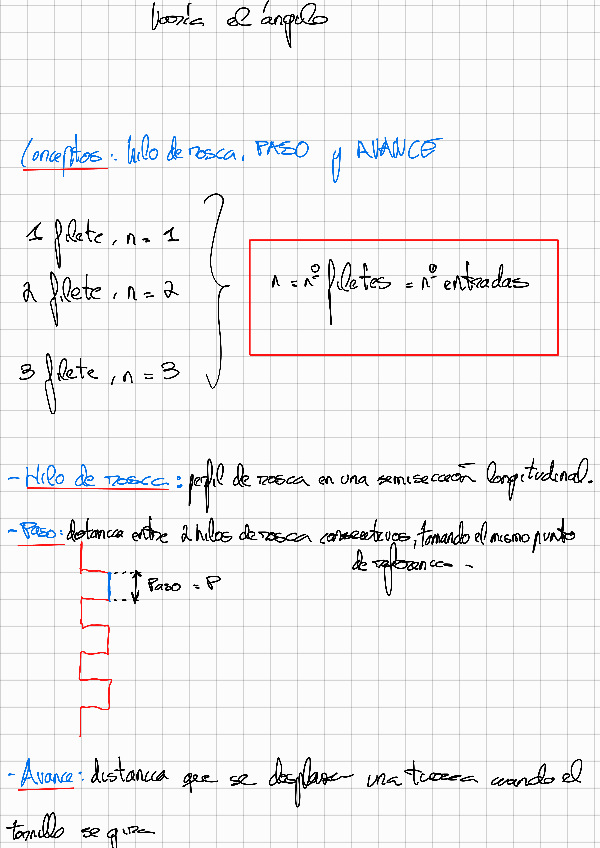 Varía el ángulo
Conceptos: hilo de rosca, PASO y AVANCE
1 filete, n = 1
2 filete, n = 2
n = nº filetes = nº entradas
3 filete, n = 3
- Hilo de rosca: perfil de rosca en una semisección longitudinal.
- Paso: distancia entre 2 hilos de rosca consecutivos, tomando el mismo punto
de referencia.
Paso = P
- Avance: distancia que se desplaza una tuerca cuando el
tornillo se gira